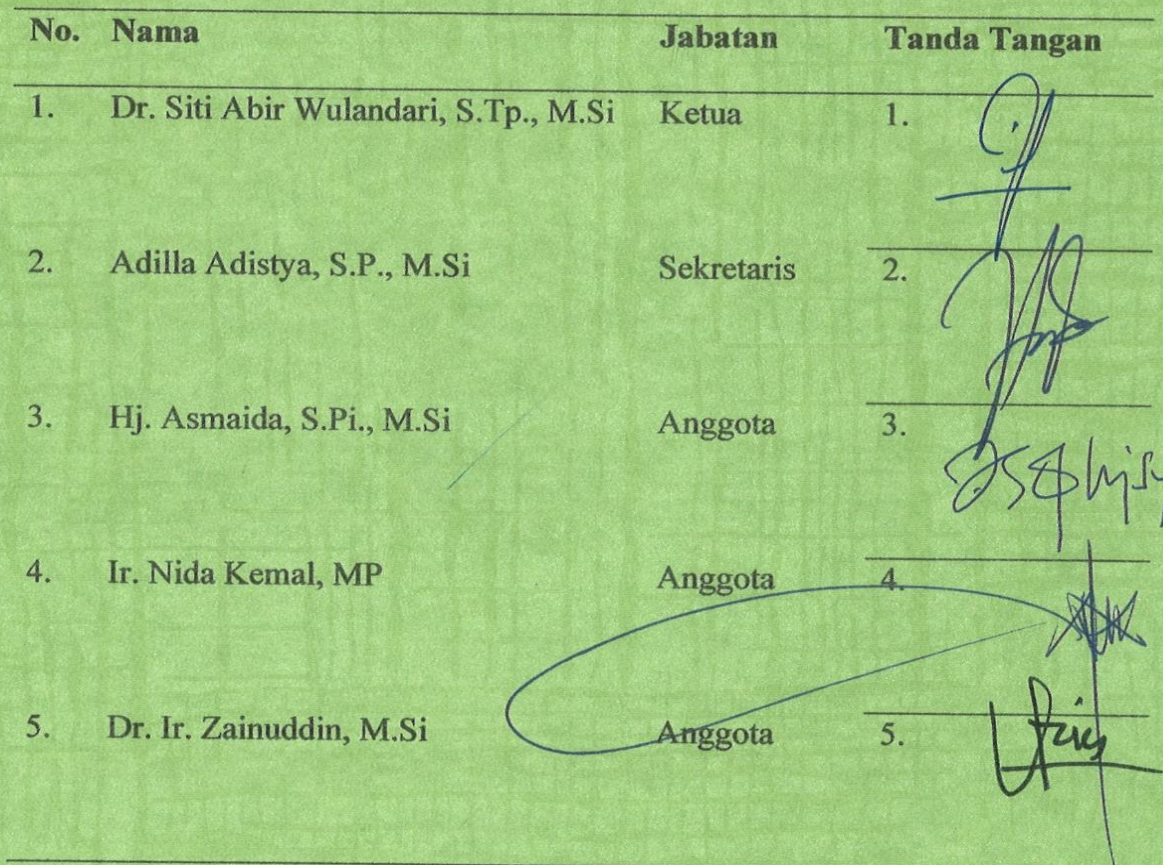 No. Nama Jabatan Tanda Tangan
1. Dr. Siti Abir Wulandari, S.Tp., M.Si Ketua 1.
2. Adilla Adistya, S.P., M.Si Sekretaris 2.
3. Hj. Asmaida, S.Pi., M.Si Anggota 3.
4. Ir. Nida Kemal, MP Anggota 4.
5. Dr. Ir. Zainuddin, M.Si Anggota 5.